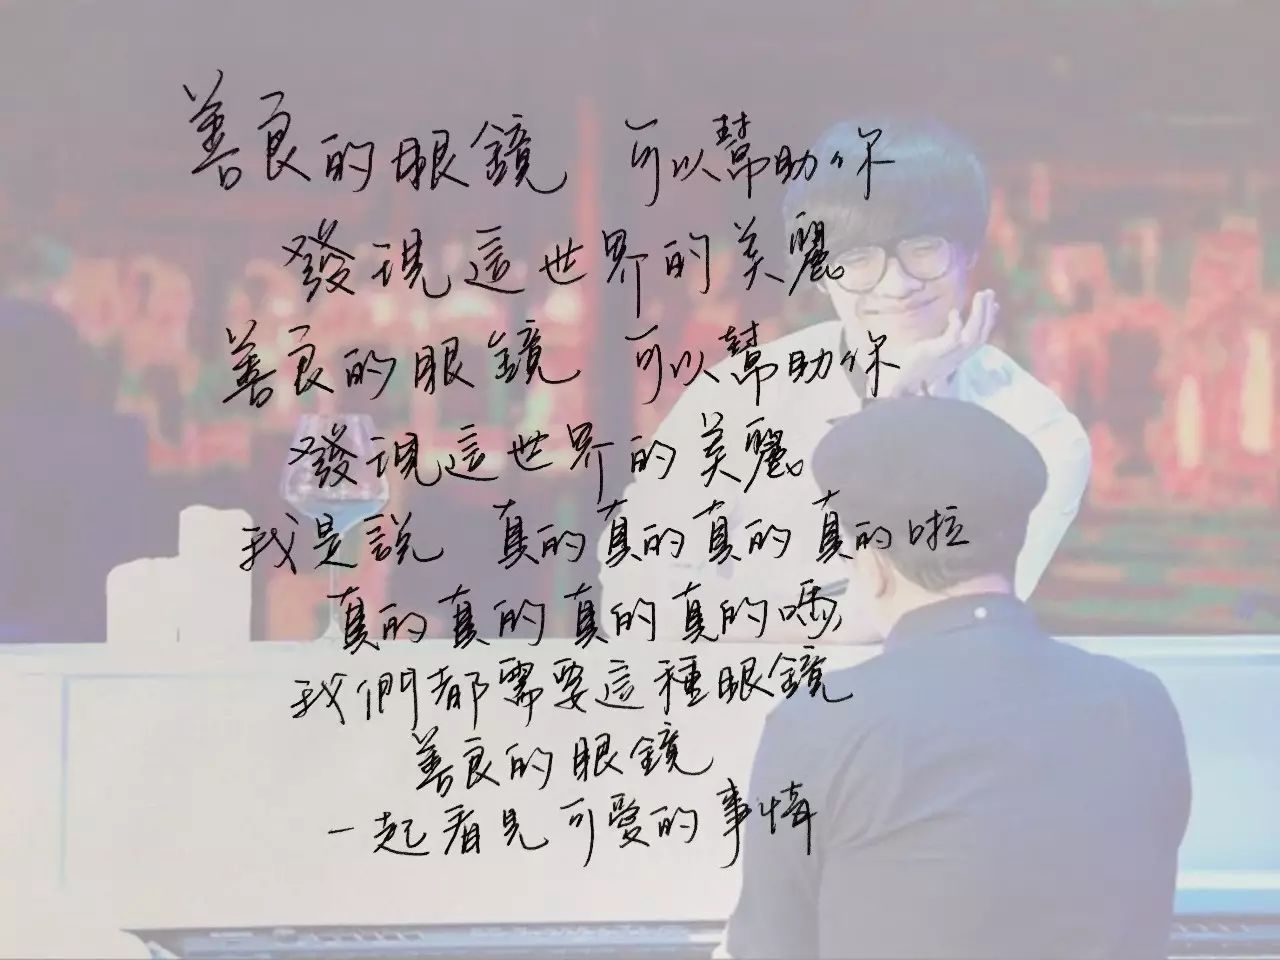 善良的眼鏡 可以幫助你
發現這世界的美麗
善良的眼鏡 可以幫助你
發現這世界的美麗
我是說 真的真的真的真的啦
真的真的真的真的嗎
我們都需要這種眼鏡
善良的眼鏡
一起看見可愛的事情